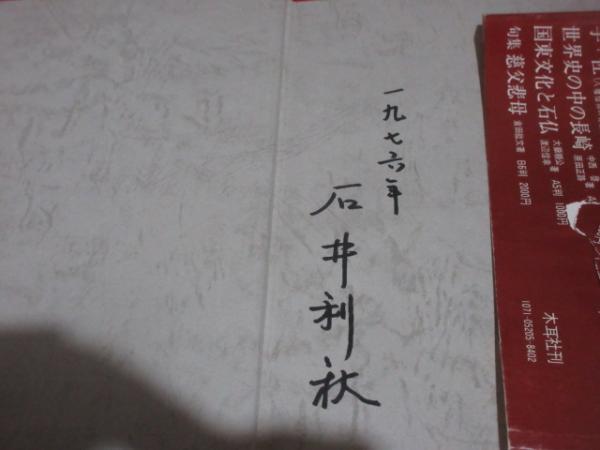 一九七六年
石井利秋
世界史の中の長崎 中西啓著
国東文化と石仏 大嶽順公著 渡辺信幸 A5判 1000円
句集 慈父悲母 B6判 2000円
木耳社刊
1071-05205-8402